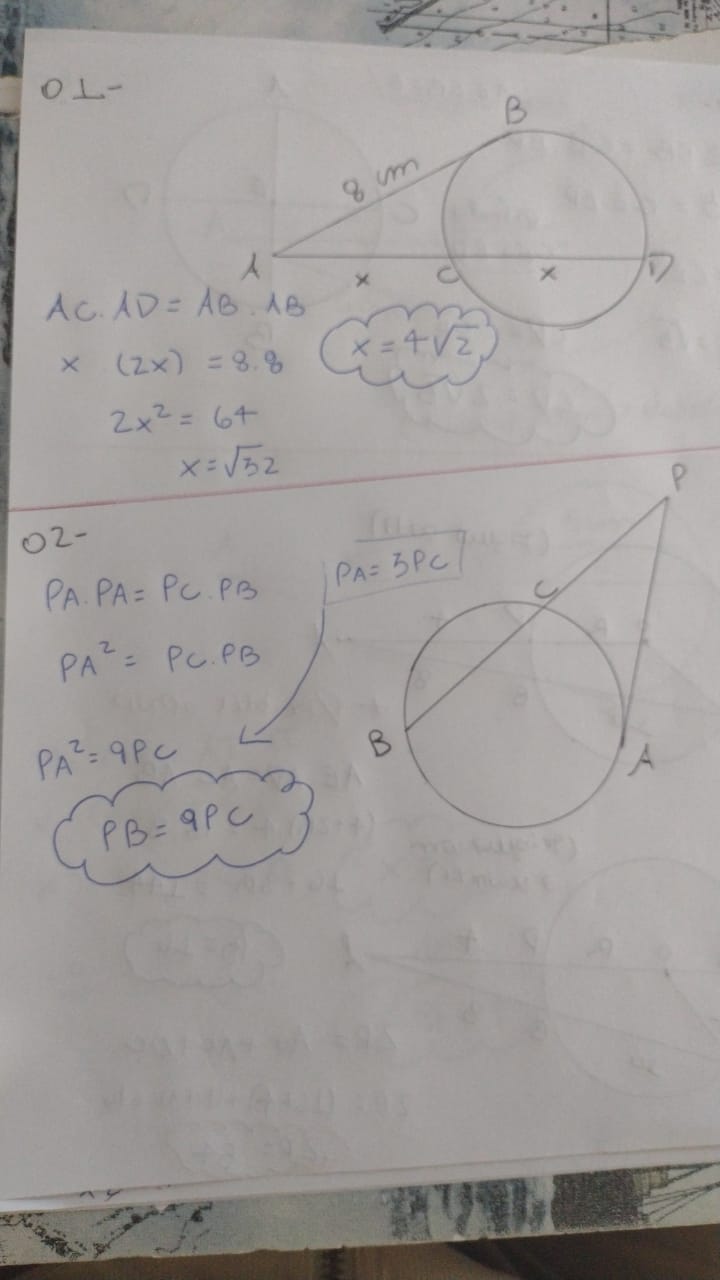 01-
B
8 cm
A
x
C
x
D
AC.AD = AB.AB
x (2x) = 8.8
x = 4√2
2x² = 64
x = √32
02-
P
PA = 3PC
PA.PA = PC.PB
C
PA² = PC.PB
B
A
PA² = 9PC
PB = 9PC